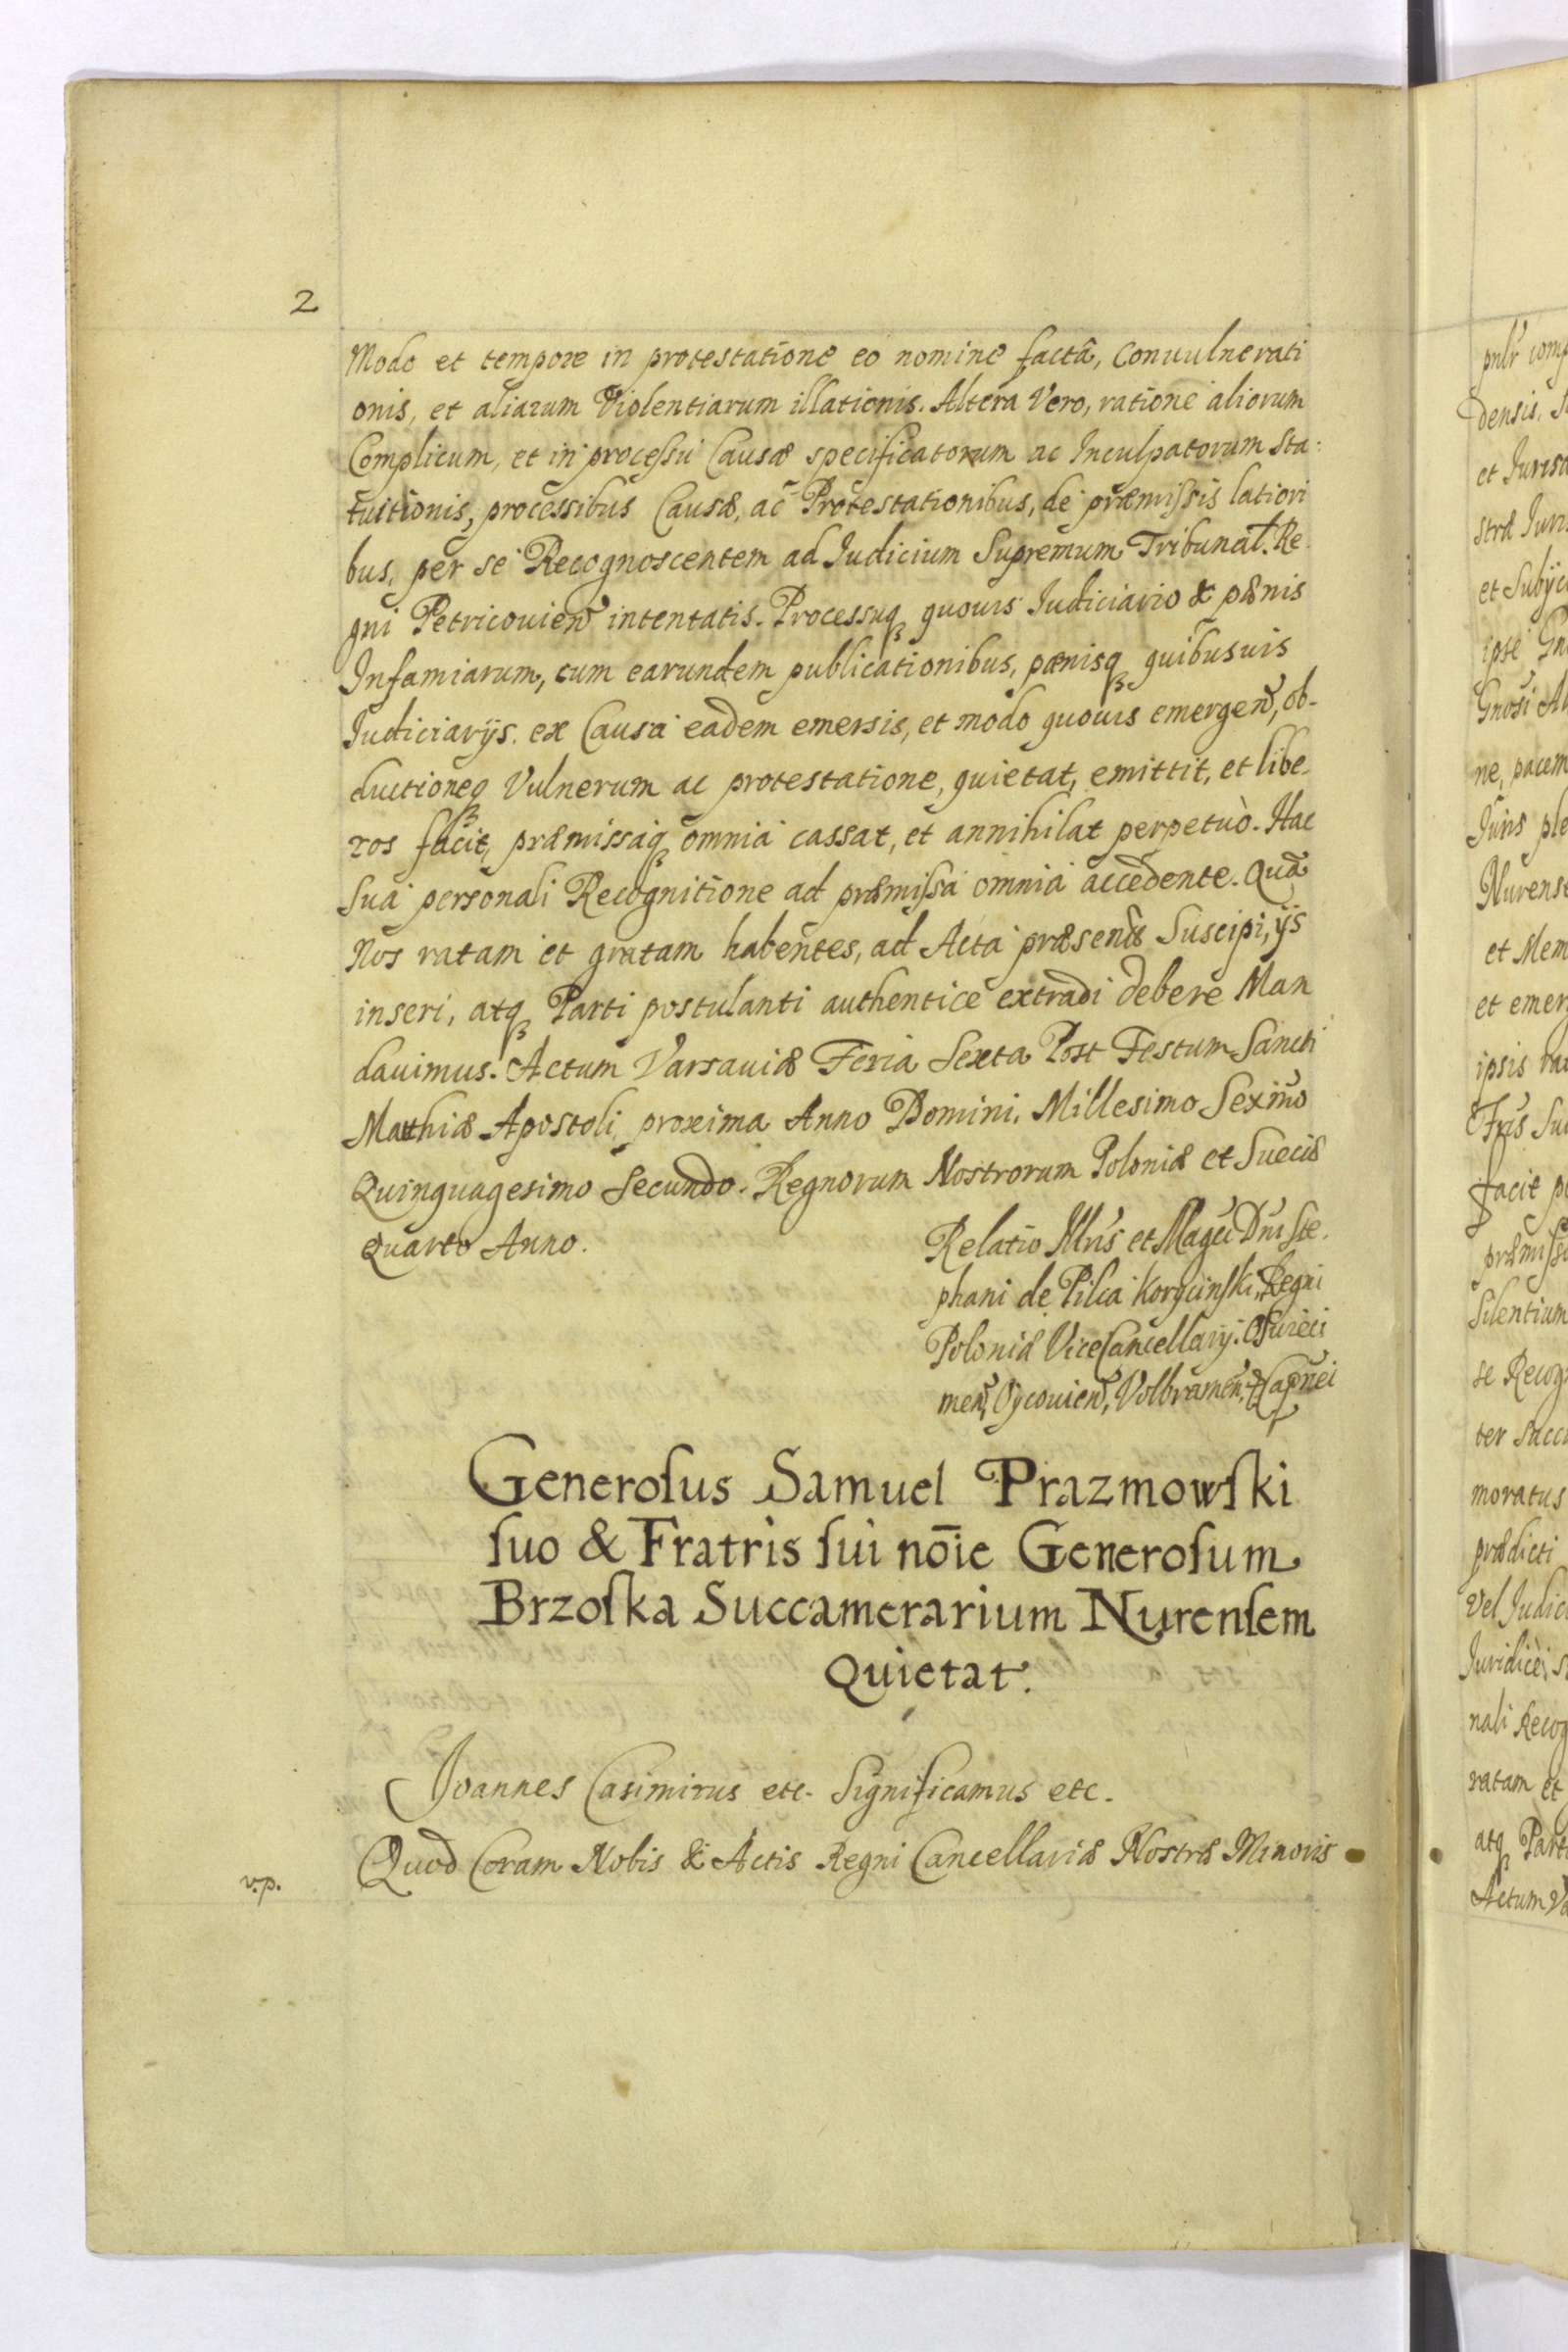 2
Modo et tempore in protestatione eo nomine factâ, Conuulnerati
onis, et aliarum Violentiarum illationis. Altera Vero, ratione aliorum
Complicum, et in processu Causæ specificatorum ac Inculpatorum Sta:
tuitionis, processibus Causæ, ac Protestationibus, de præmissis latiori
bus, per se Recognoscentem ad Judicium Supremum Tribunal. Re
gni Petricouien intentatis. Processuq quouis Judiciario & pænis
Infamiarum, cum earundem publicationibus, pænisq quibusuis
Judiciarijs. ex Causa eadem emersis, et modo quouis emergen, ob-
ductioneq Vulnerum ac protestatione, quietat, emittit, et libe.
ros facit, præmissaq omnia cassat, et annihilat perpetuò. Hac
Sua personali Recognitione ad præmissa omnia accedente. Quã
Nos ratam et gratam habentes, ad Acta præsentia Suscipi, ijs
inseri, atq Parti postulanti authentice extradi debere Man
dauimus. Actum Varsauiæ Feria Sexta Post Festum Sancti
Mathiæ Apostoli proxima Anno Domini. Millesimo Sexmo
Quinquagesimo Secundo. Regnorum Nostrorum Poloniæ et Sueciæ
Quarto Anno.
Relatio Illris et Magci Dni Ste.
phani de Pilca Korycinski, Regni
Poloniæ ViceCancellarij. Oswieci
men, Oycouien, Volbramen,
Generosus Samuel Prazmowski
suo & Fratris sui nōie Generosum
Brzoska Succamerarium Nurensem
Quietat.
Joannes Casimirus etc. Significamus etc.
Quod Coram Nobis & Actis Regni Cancellariæ Nostræ Minoris
v.p.
pnlr
densis,
et
stræ
et
ipse
Gnosi
ne, pacem
Juris
Nurens
et Mem
et emer
ipsis
Fris
facit
præmiss
Silentium
se Recog
ter Succ
moratus
prædicti
Vel Judic
Juridice
nali Recog
ratam et
atq Part
Actum